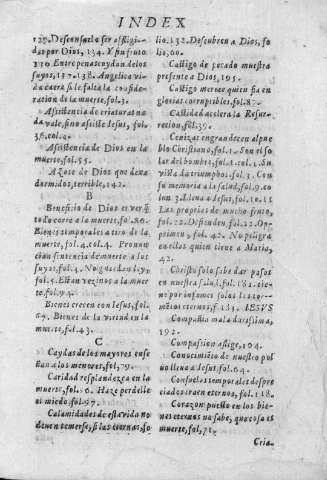 INDEX
129. Desconsuelo ser afligi-
dos por Dios, 134. Y su fruto
suyos, 137. 138. Angelica vi-
da caera si le falta la conside-
racion de la muerte, fol. 3.
Asistencia de criaturas na-
da vale, sino assiste Iesus, fol.
36. col. 2.
Asistencia de Dios en la
muerte, fol. 55.
Azote de Dios que dexa
dormidos, terrible, 142.
B
Beneficio de Dios es ver
todo corre a la muerte, fol. 86.
Bienes temporales a tiro de la
muerte, fol. 4. col. 4. Pronun
cian sentencia de muerte a los
suyos, fol. 4. No guardan
fol. 5. Estan vezinos a la muer
te fol. 94.
Bienes crecen con Iesus, fol.
67. Bienes de la virtud en la
muerte, fol. 43.
C
Caydas de los mayores ense-
ñan a los menores, fol. 79.
Caridad resplandezca en la
muerte, fol. 6. Haze perdelle
el miedo, fol. 97.
Calamidades de esta vida no
deven temerse, si las eternas, fo
lio. 132. Descubren a Dios, fo
lio, 60.
Castigo de pecado muestra
presente a Dios, 195.
Castigo merece quien fia en
glorias corruptibles, fol. 87.
Castidad acelera la Resur-
recion, fol. 39.
Cenizas engrandecen al pue
blo Christiano, fol. 1. Son el so
lar del hombre, fol. 1. col. 1. Su
vista da triumphos, fol. 3. Con
su memoria a la salud, fol. 9. co
lon. 3. Llena a Iesus, fol. 10. 11
Las propias de mucho fruto,
fol. 22. Defienden, fol. 22.
primen, fol. 42. No peligra
en ellas quien tiene a Maria,
42.
Christo solo sabe dar passos
en nuestra salud, fol. 182.
ne por infames solos los ter-
minos eternos, f. 185. IESVS
Compañia mala darasima,
192.
Compassion aflige, 194.
Conocimiẽto de nuestro pol
vo lleva a Iesus, fol. 64.
Consuelos temporales despre
ciados traen eternos, fol. 118.
Coraçon puesto en los bie-
nes eternos no sabe, que cosa es
muerte, fol, 71.
Cria-